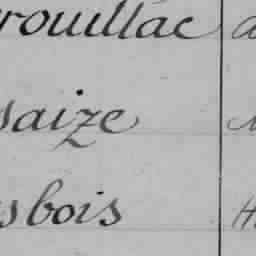 rouillac
saize
sbois